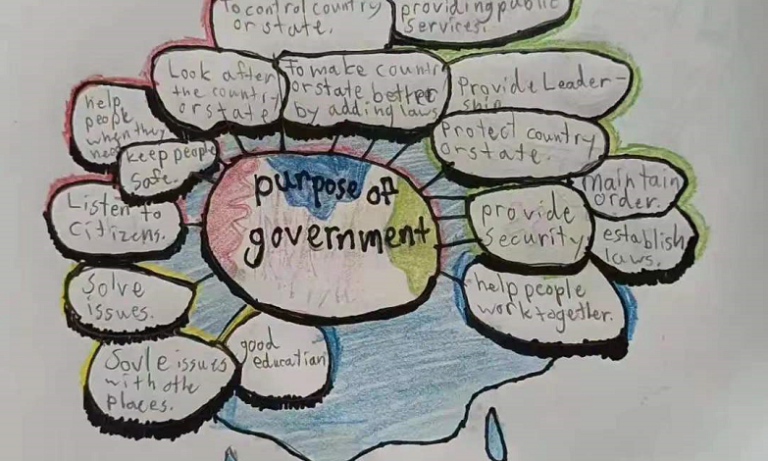 To control country
or state.
providing public
services.
Look after
the country
or state
To make country
or state better
by adding laws
Provide Leader-
ship
help
people
when they
need
keep people
safe.
Protect country
or state.
Listen to
Citizens.
purpose of
government
maintain
order.
provide
security
establish
laws.
Solve
issues.
help people
work together.
Sovle issues
with othe
places.
good
education